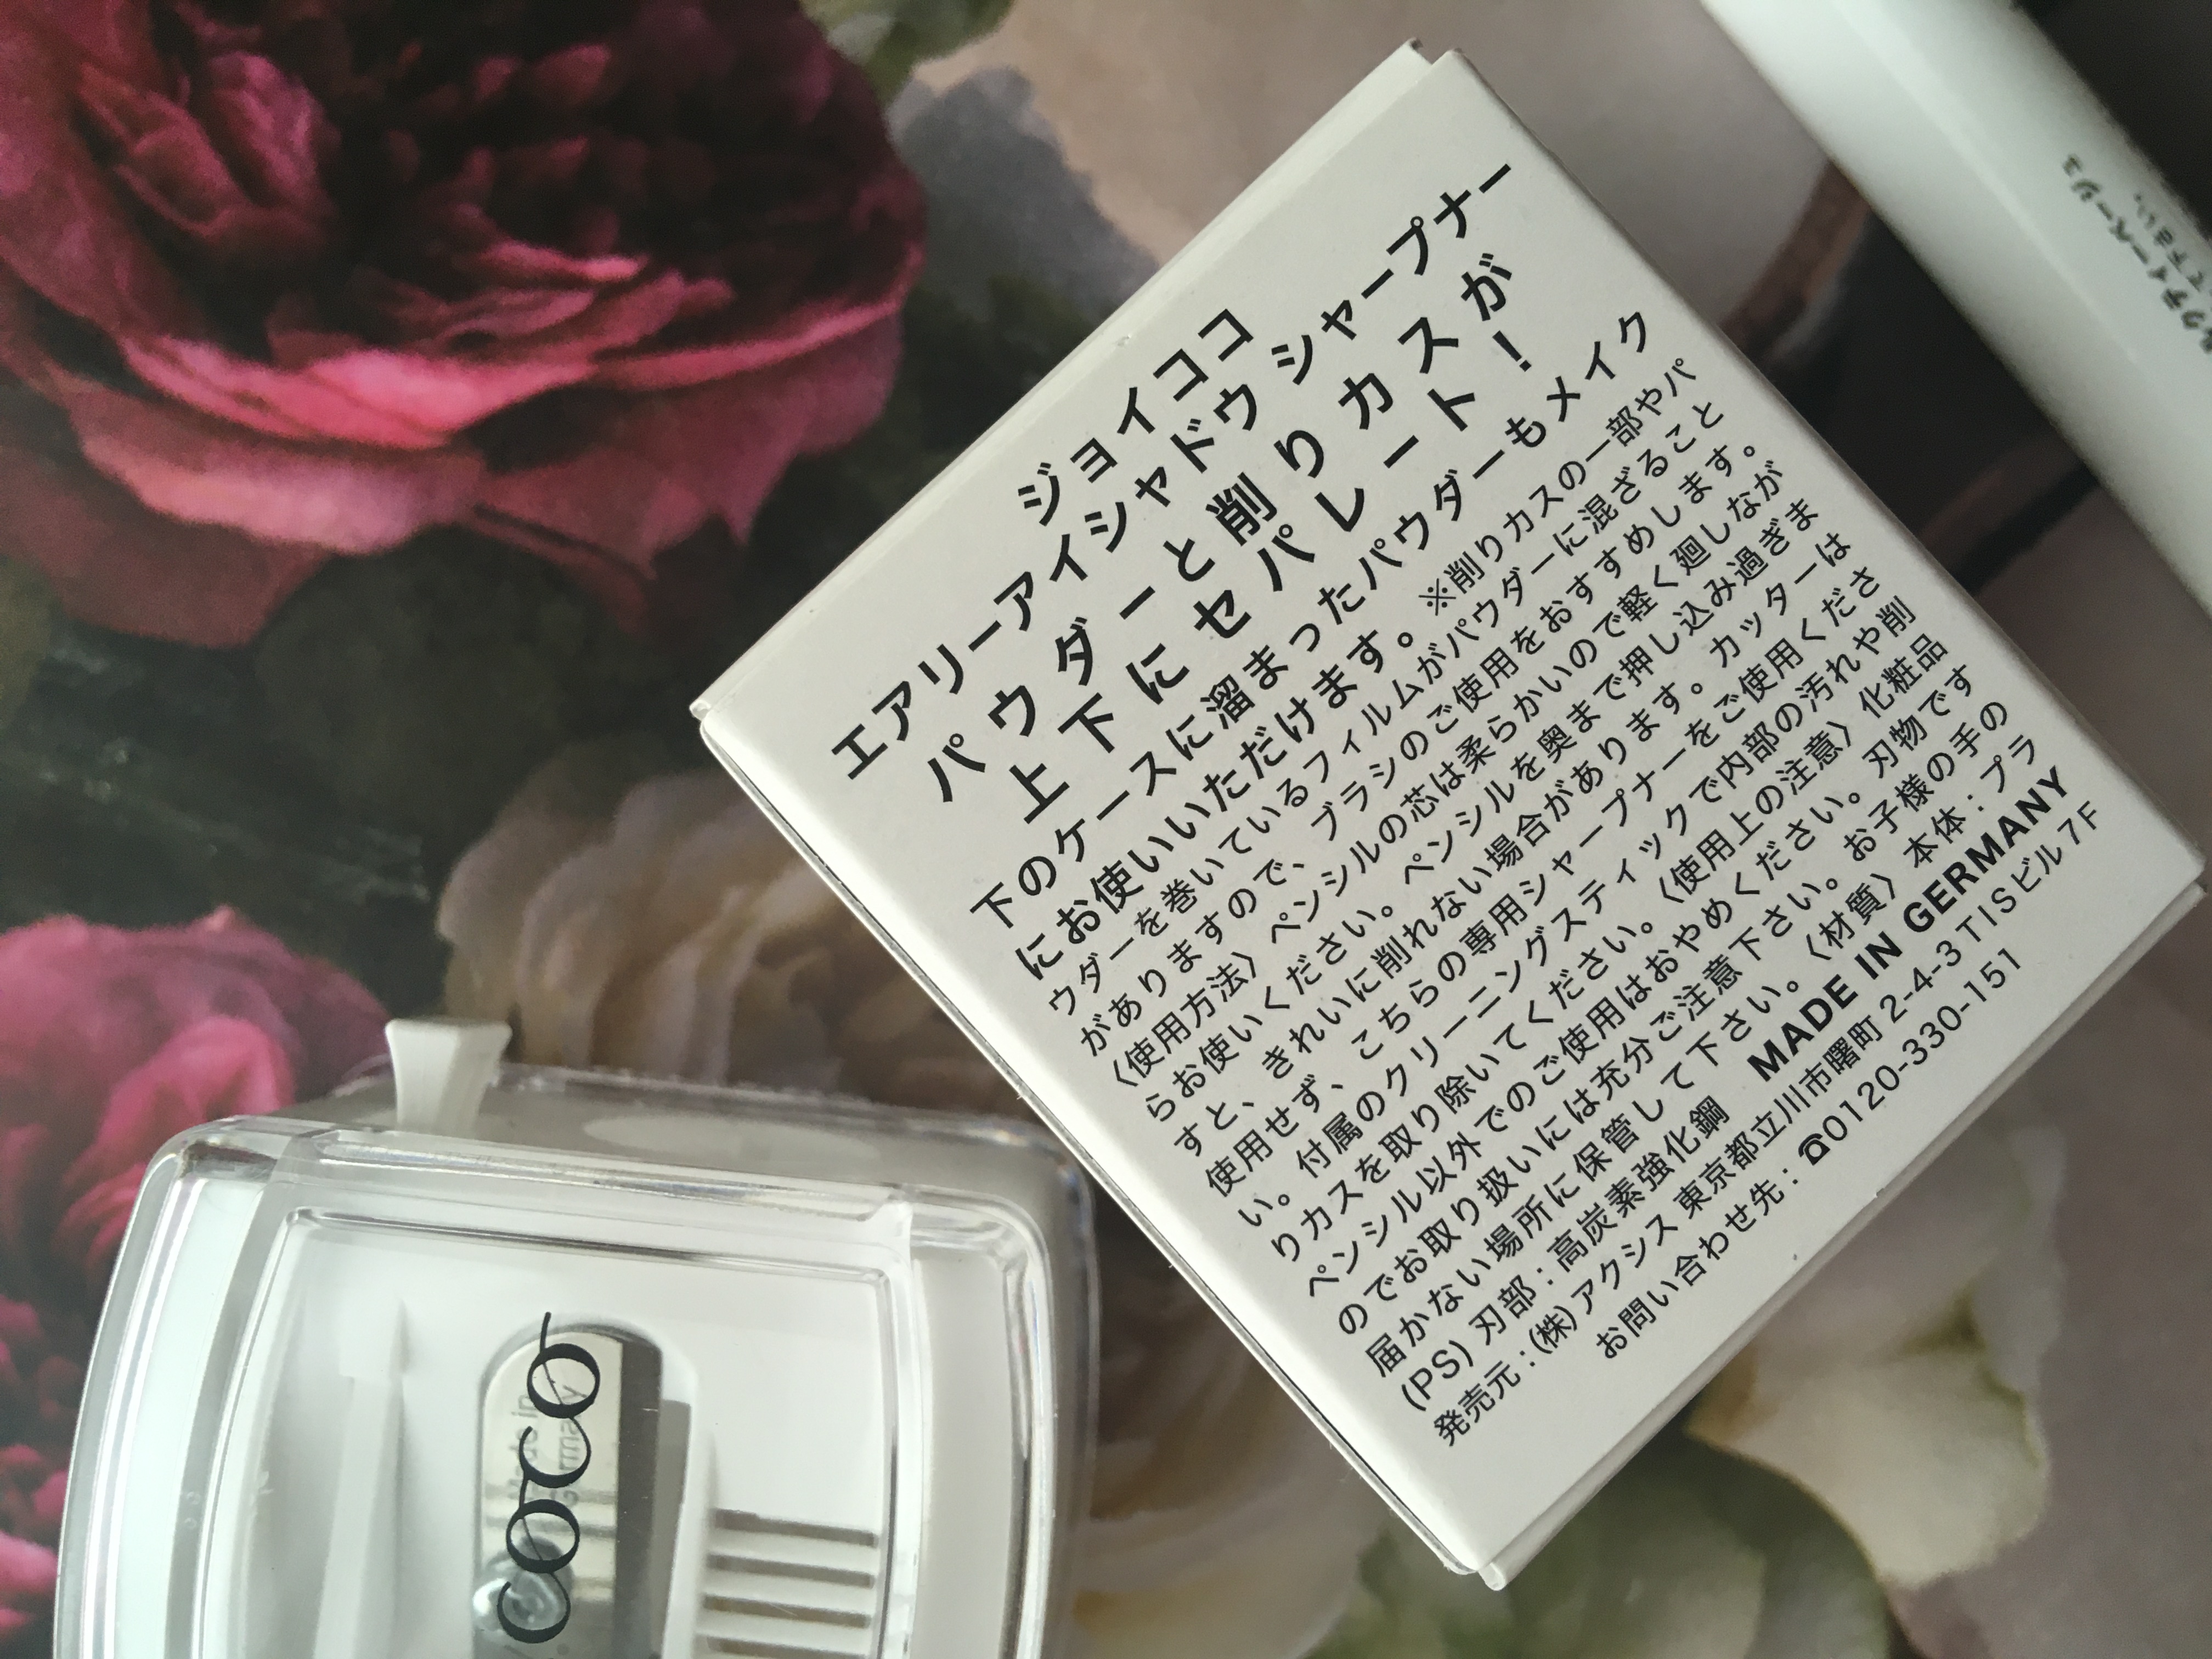 ジョイココ
エアリーアイシャドウ シャープナー
パウダーと削りカスが
上下にセパレート!
下のケースに溜まったパウダーもメイク
にお使いいただけます。※削りカスの一部やパ
ウダーを巻いているフィルムがパウダーに混ざること
がありますので、ブラシのご使用をおすすめします。
〈使用方法〉ペンシルの芯は柔らかいので軽く廻しなが
らお使いください。ペンシルを奥まで押し込み過ぎま
すと、きれいに削れない場合があります。カッターは
使用せず、こちらの専用シャープナーをご使用くださ
い。付属のクリーニングスティックで内部の汚れや削
りカスを取り除いてください。〈使用上の注意〉化粧品
ペンシル以外でのご使用はおやめください。刃物です
のでお取り扱いには充分ご注意下さい。お子様の手の
届かない場所に保管して下さい。〈材質〉本体:プラ
(PS) 刃部:高炭素強化鋼 MADE IN GERMANY
発売元:(株)アクシス 東京都立川市曙町2-4-3 TISビル7F
お問い合わせ先:☎0120-330-151
coco
Made in